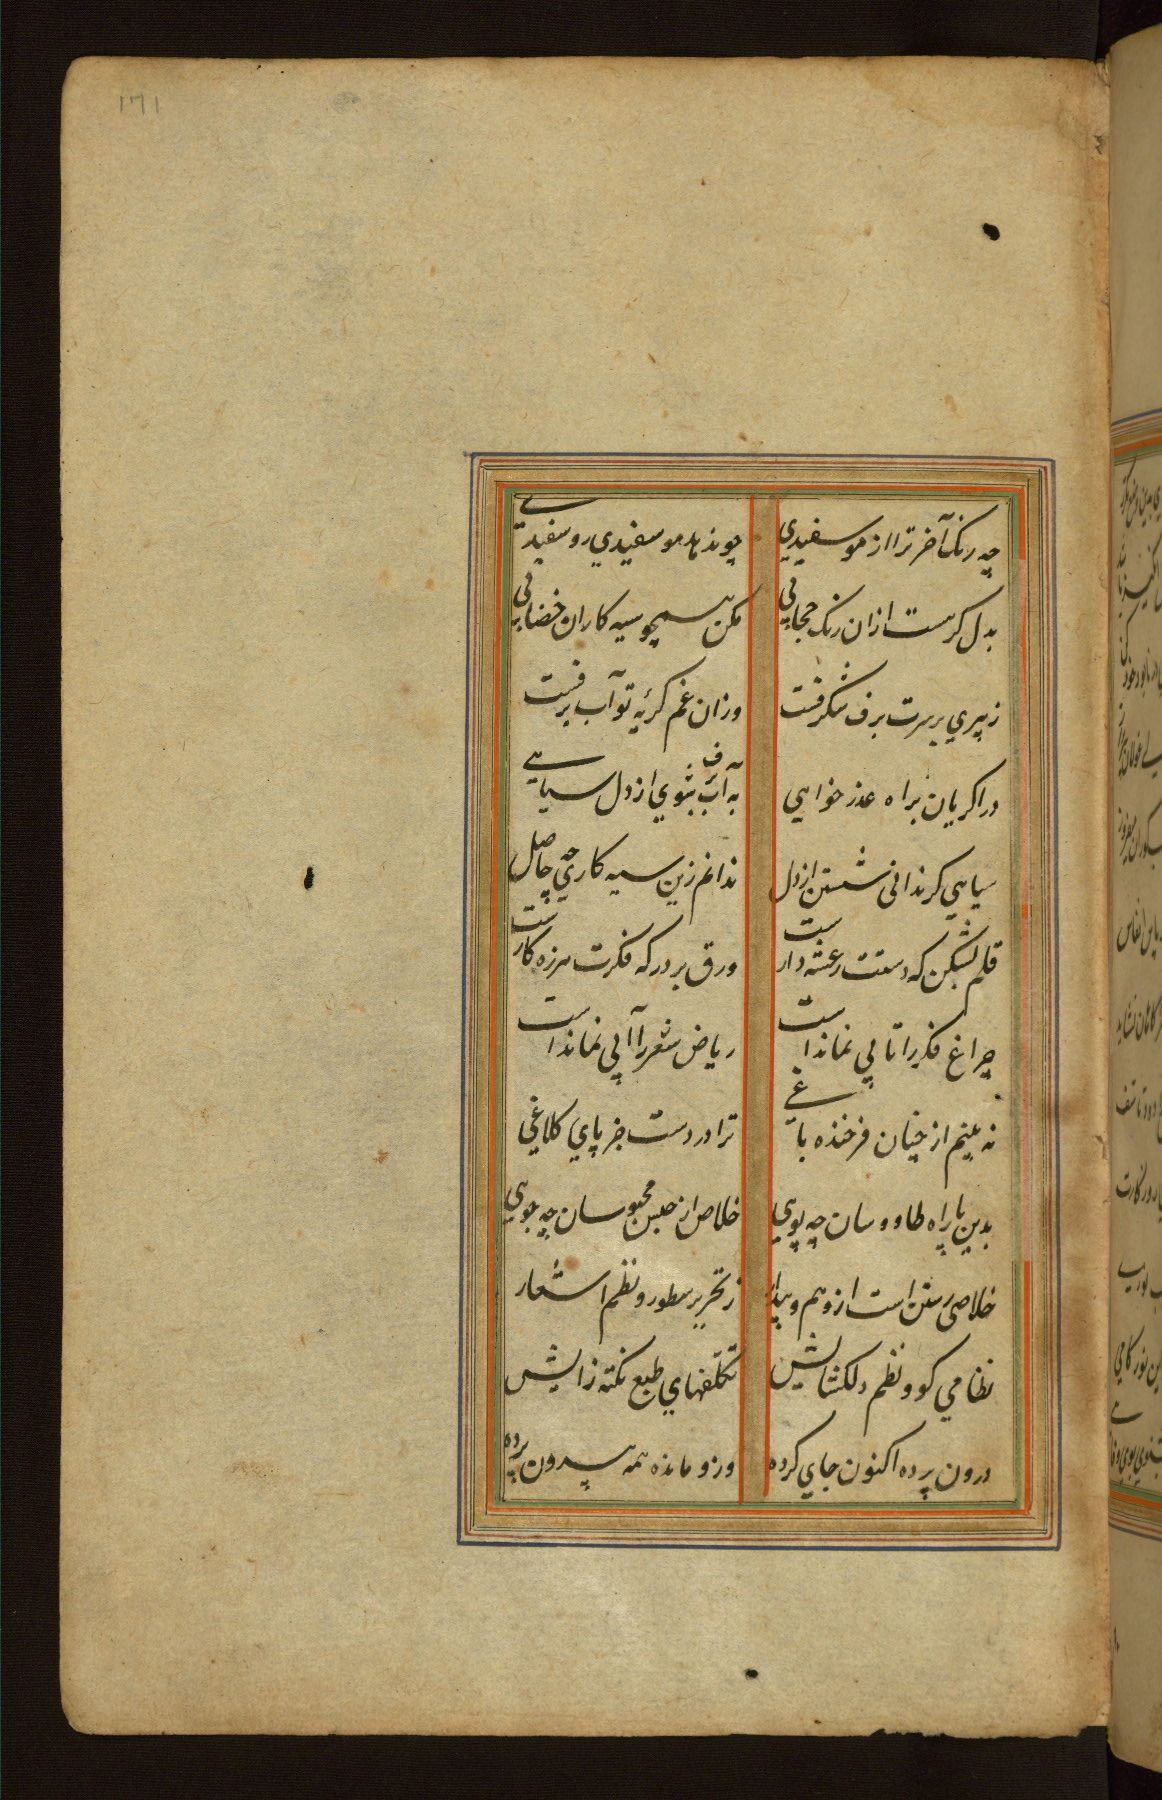 ١٢١
چه رنک آخر ترا از مو سفیدي
چو ندهد مو سفیدي رو سفیدے
بدل کرهست ازان رنک حجابي
مکن همچو سیه کاران خضابي
ز پیري بر سرت برف شکرفست
وزان غم کرئیه تو آب برفست
درا کریان براه عذر خواهي
به آب برف بشوي از دل سیاهے
سیاهي کر ندانی شستن از دل
ندانم زین سیه کاري چه حاصل
قلم بشکن که دستت رعشه دارست
ورق بر در که فکرت هرزه کارست
چراغ فکر را تابي نمانداست
ریاض شعر را آبي نمانداست
نه بینم از چنان فرخنده باغے
ترا در دست جز پاي کلاغي
بدین پا راه طاووسان چه پوي
خلاص از حبس محبوسان چه جوي
خلاصی رستن است از وهم و پندار
ز تحریر سطور و نظم اشعار
نظامي کو و نظم دلکشایش
تکلفهاي طبع نکته زایش
درون پرده اکنون جاي کرده
وزو مانده همه بیرون پرده